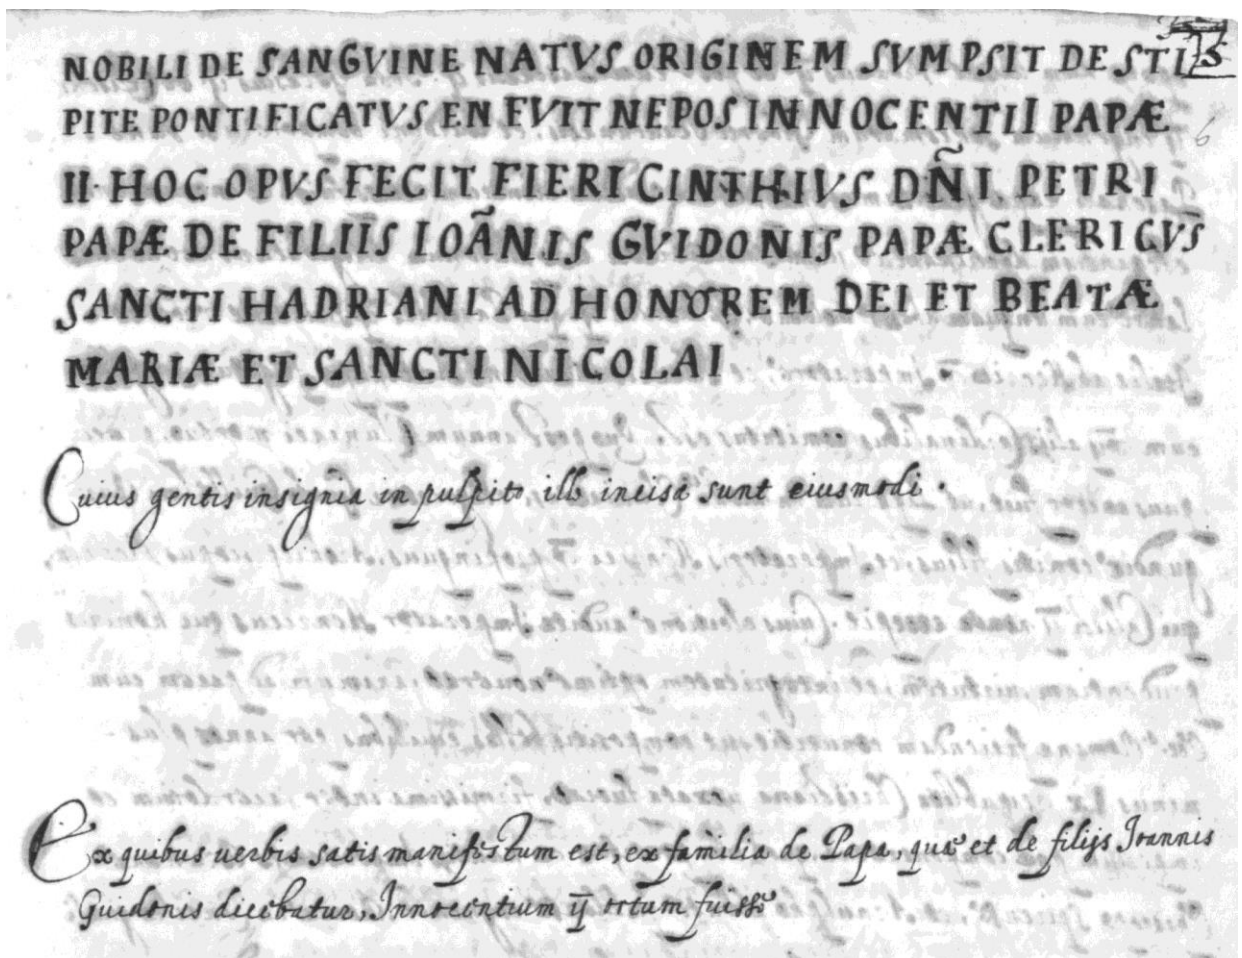 NOBILI DE SANGVINE NATVS ORIGINEM SVMPSIT DE STI
PITE PONTIFICATVS EN FVIT NEPOS INNOCENTII PAPÆ
II· HOC OPVS FECIT FIERI CINTHIVS DÑI PETRI
PAPÆ DE FILIIS IOÃNIS GVIDONIS PAPÆ CLERICVS
SANCTI HADRIANI AD HONOREM DEI ET BEATÆ
MARIÆ ET SANCTI NICOLAI
Cuius gentis insignia in pulpito illo incisa sunt eiusmodi.
Ex quibus uerbis satis manifestum est, ex familia de Papa, quæ et de filijs Ioannis
Guidonis dicebatur, Innocentium ij ortum fuisse